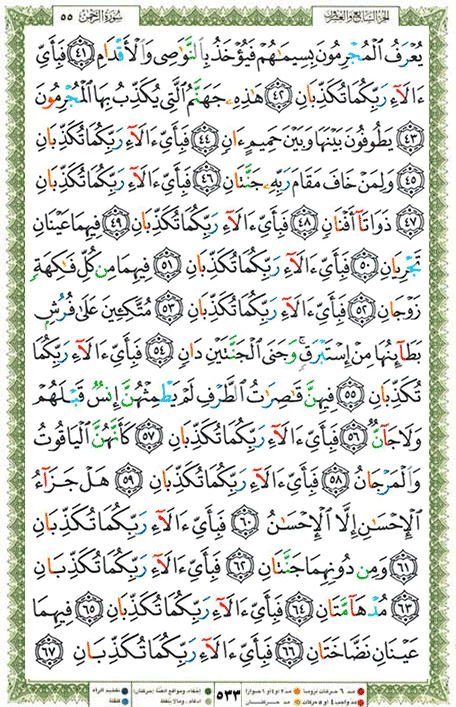 الجزء السابع والعشرون سورة الرحمن ٥٥
يُعْرَفُ الْمُجْرِمُونَ بِسِيمَٰهُمْ فَيُؤْخَذُ بِالنَّوَٰصِى وَالْأَقْدَامِ ٤١ فَبِأَىِّ
ءَالَآءِ رَبِّكُمَا تُكَذِّبَانِ ٤٢ هَٰذِهِۦ جَهَنَّمُ الَّتِى يُكَذِّبُ بِهَا الْمُجْرِمُونَ
٤٣ يَطُوفُونَ بَيْنَهَا وَبَيْنَ حَمِيمٍ ءَانٍ ٤٤ فَبِأَىِّ ءَالَآءِ رَبِّكُمَا تُكَذِّبَانِ
٤٥ وَلِمَنْ خَافَ مَقَامَ رَبِّهِۦ جَنَّتَانِ ٤٦ فَبِأَىِّ ءَالَآءِ رَبِّكُمَا تُكَذِّبَانِ
٤٧ ذَوَاتَآ أَفْنَانٍ ٤٨ فَبِأَىِّ ءَالَآءِ رَبِّكُمَا تُكَذِّبَانِ ٤٩ فِيهِمَا عَيْنَانِ
تَجْرِيَانِ ٥٠ فَبِأَىِّ ءَالَآءِ رَبِّكُمَا تُكَذِّبَانِ ٥١ فِيهِمَا مِن كُلِّ فَٰكِهَةٍ
زَوْجَانِ ٥٢ فَبِأَىِّ ءَالَآءِ رَبِّكُمَا تُكَذِّبَانِ ٥٣ مُتَّكِـِٔينَ عَلَىٰ فُرُشٍۭ
بَطَآئِنُهَا مِنْ إِسْتَبْرَقٍ ۚ وَجَنَى الْجَنَّتَيْنِ دَانٍ ٥٤ فَبِأَىِّ ءَالَآءِ رَبِّكُمَا
تُكَذِّبَانِ ٥٥ فِيهِنَّ قَٰصِرَٰتُ الطَّرْفِ لَمْ يَطْمِثْهُنَّ إِنسٌ قَبْلَهُمْ
وَلَا جَآنٌّ ٥٦ فَبِأَىِّ ءَالَآءِ رَبِّكُمَا تُكَذِّبَانِ ٥٧ كَأَنَّهُنَّ الْيَاقُوتُ
وَالْمَرْجَانُ ٥٨ فَبِأَىِّ ءَالَآءِ رَبِّكُمَا تُكَذِّبَانِ ٥٩ هَلْ جَزَآءُ
الْإِحْسَٰنِ إِلَّا الْإِحْسَٰنُ ٦٠ فَبِأَىِّ ءَالَآءِ رَبِّكُمَا تُكَذِّبَانِ
٦١ وَمِن دُونِهِمَا جَنَّتَانِ ٦٢ فَبِأَىِّ ءَالَآءِ رَبِّكُمَا تُكَذِّبَانِ
٦٣ مُدْهَآمَّتَانِ ٦٤ فَبِأَىِّ ءَالَآءِ رَبِّكُمَا تُكَذِّبَانِ ٦٥ فِيهِمَا
عَيْنَانِ نَضَّاخَتَانِ ٦٦ فَبِأَىِّ ءَالَآءِ رَبِّكُمَا تُكَذِّبَانِ ٦٧
٥٣٣